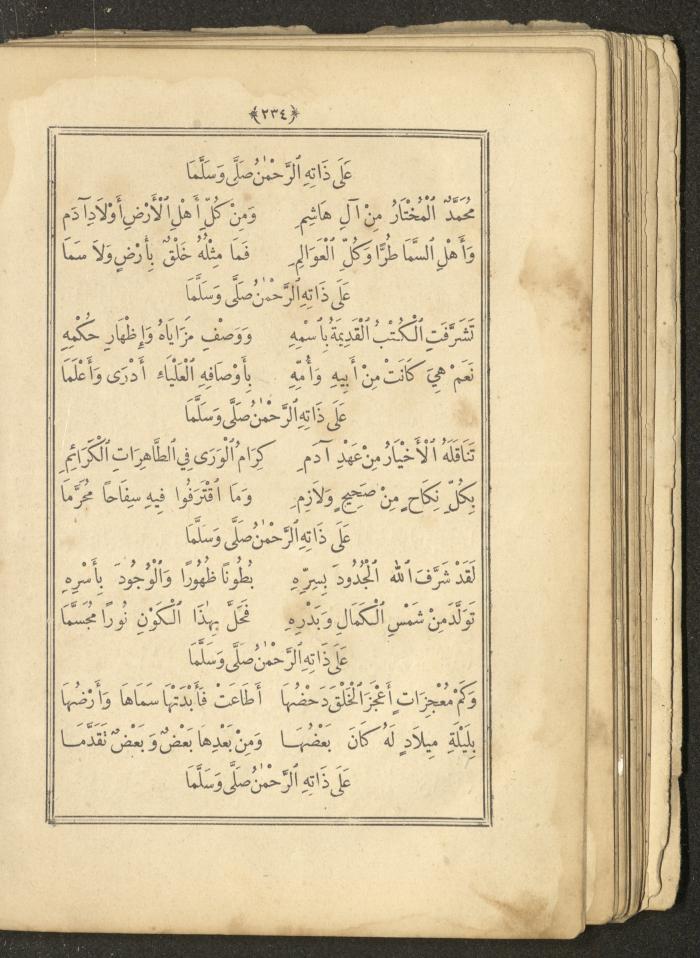 ﴿٢٣٤﴾
عَلَى ذَاتِهِ الرَّحْمٰنُ صَلَّى وَسَلَّمَا
مُحَمَّدٌ الْمُخْتَارُ مِنْ آلِ هَاشِمِ وَمِنْ كُلِّ أَهْلِ الْأَرْضِ أَوْلَادِ آدَمِ
وَأَهْلِ السَّمَا طُرًّا وَكُلِّ الْعَوَالِمِ فَمَا مِثْلُهُ خَلْقٌ بِأَرْضٍ وَلاَ سَمَا
عَلَى ذَاتِهِ الرَّحْمٰنُ صَلَّى وَسَلَّمَا
تَشَرَّفَتِ الْكُتْبُ الْقَدِيمَةُ بِاسْمِهِ وَوَصْفِ مَزَايَاهُ وَإِظْهَارِ حُكْمِهِ
نَعَمْ هِيَ كَانَتْ مِنْ أَبِيهِ وَأُمِّهِ بِأَوْصَافِهِ الْعَلْيَاءِ أَدْرَى وَأَعْلَمَا
عَلَى ذَاتِهِ الرَّحْمٰنُ صَلَّى وَسَلَّمَا
تَنَاقَلَهُ الْأَخْيَارُ مِنْ عَهْدِ آدَمِ كِرَامُ الْوَرَى فِي الطَّاهِرَاتِ الْكَرَائِمِ
بِكُلِّ نِكَاحٍ مِنْ صَحِيحٍ وَلَازِمِ وَمَا اقْتَرَفُوا فِيهِ سِفَاحًا مُحَرَّمَا
عَلَى ذَاتِهِ الرَّحْمٰنُ صَلَّى وَسَلَّمَا
لَقَدْ شَرَّفَ اللهُ الْجُدُودَ بِسِرِّهِ بُطُونًا ظُهُورًا وَالْوُجُودَ بِأَسْرِهِ
تَوَلَّدَ مِنْ شَمْسِ الْكَمَالِ وَبَدْرِهِ فَحَلَّ بِهٰذَا الْكَوْنِ نُورًا مُجَسَّمَا
عَلَى ذَاتِهِ الرَّحْمٰنُ صَلَّى وَسَلَّمَا
وَكَمْ مُعْجِزَاتٍ أَعْجَزَ الْخَلْقَ دَحْضُهَا أَطَاعَتْ فَأَبْدَتْهَا سَمَاهَا وَأَرْضُهَا
بِلَيْلَةِ مِيلَادٍ لَهُ كَانَ بَعْضُهَا وَمِنْ بَعْدِهَا بَعْضٌ وَبَعْضٌ تَقَدَّمَا
عَلَى ذَاتِهِ الرَّحْمٰنُ صَلَّى وَسَلَّمَا